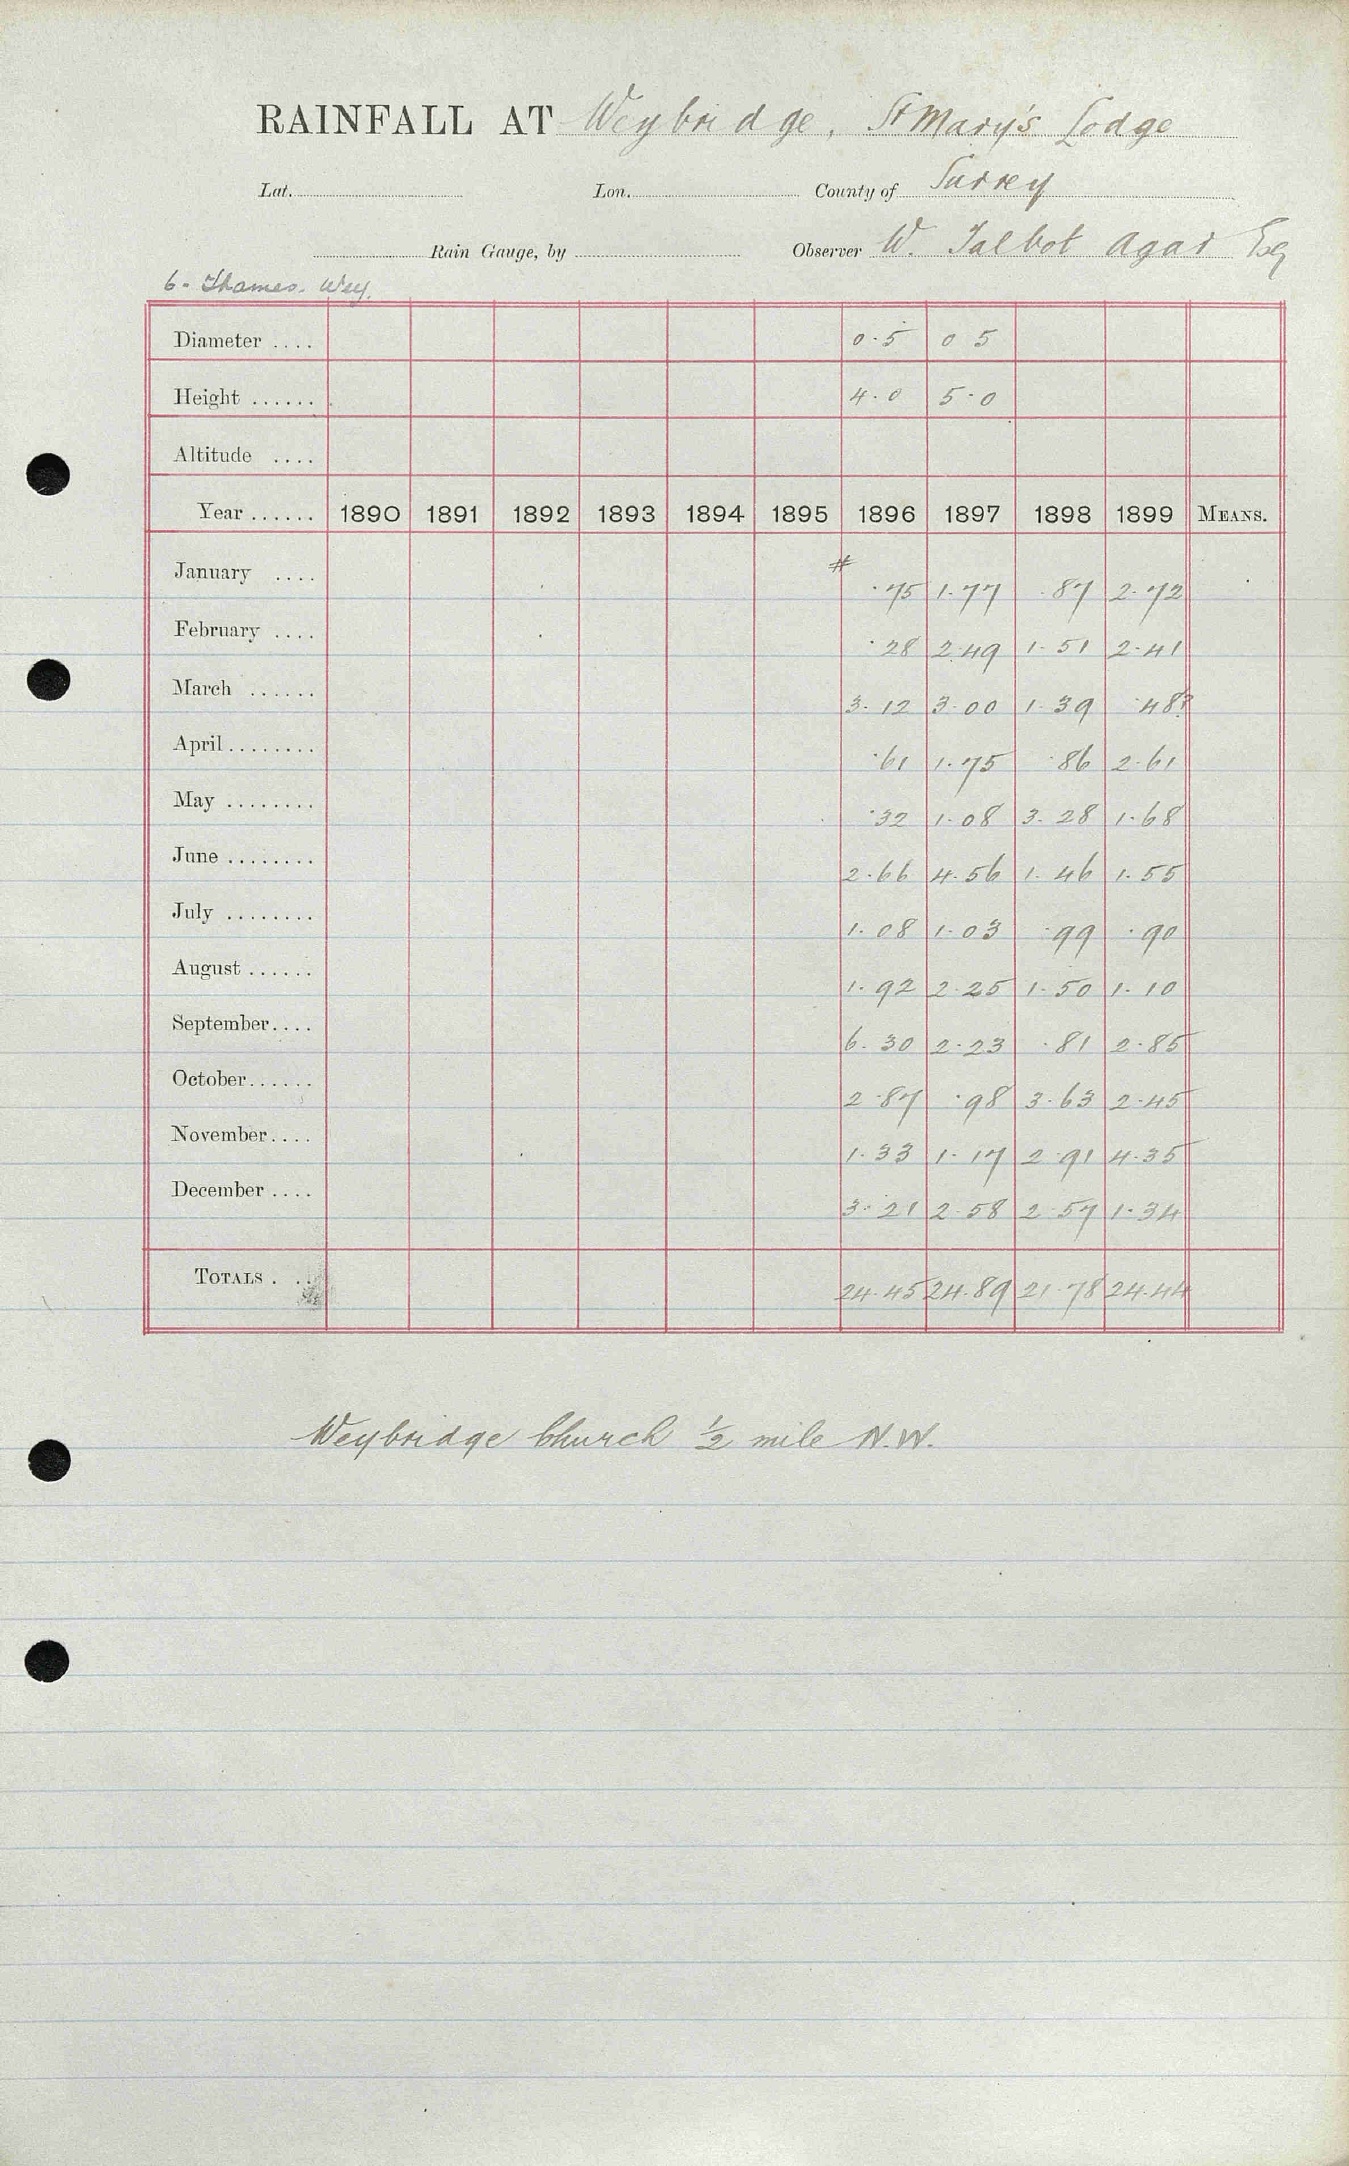 RAINFALL AT Weybridge, St Mary's Lodge
Lat. Lon. County of Surrey
Rain Gauge, by Observer W. Talbot Agar Esq
6. Thames. Wey.
Diameter .... 0.5 0 5
Height ...... 4.0 5.0
Altitude ....
Year ...... 1890 1891 1892 1893 1894 1895 1896 1897 1898 1899 MEANS.
January .... # .75 1.77 .87 2.72
February .... .28 2.49 1.51 2.41
March ...... 3.12 3.00 1.39 .48?
April ........ .61 1.75 .86 2.61
May ........ .32 1.08 3.28 1.68
June ........ 2.66 4.56 1.46 1.55
July ........ 1.08 1.03 .99 .90
August ...... 1.92 2.25 1.50 1.10
September.... 6.30 2.23 .81 2.85
October...... 2.87 .98 3.63 2.45
November.... 1.33 1.17 2.91 4.35
December .... 3.21 2.58 2.57 1.34
TOTALS . .. 24.45 24.89 21.78 24.44
Weybridge Church ½ mile N.W.